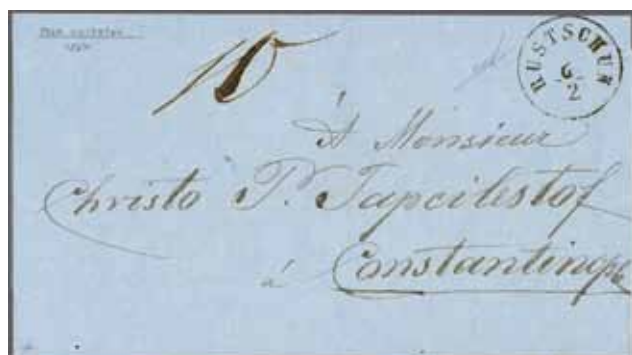 10
RUSTSCHUK
6
2
A Monsieur
Christo P. Tapcilestof
à Constantinople